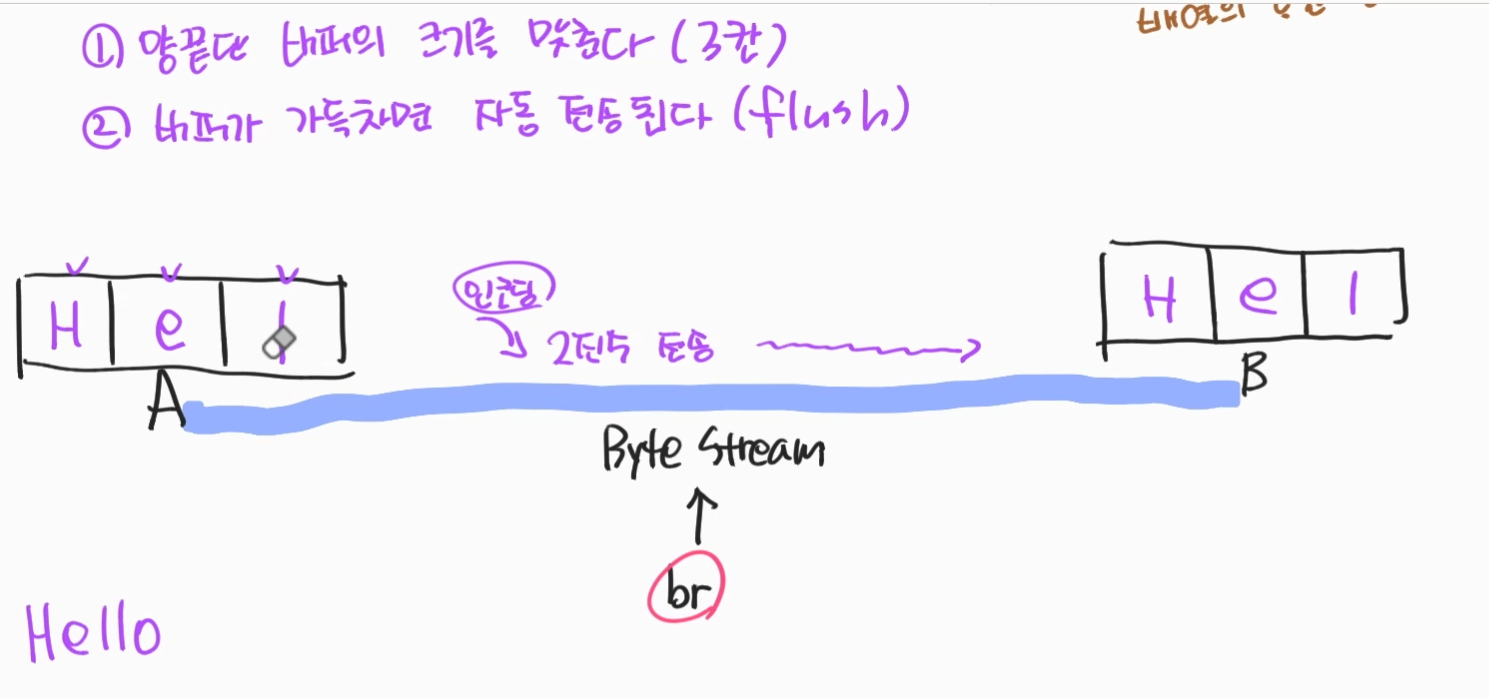 ① 양끝단 버퍼의 크기를 맞춘다 (3칸)
② 버퍼가 가득차면 자동 전송된다 (flush)
배열의
H e l
인코딩
2진수 전송
H e l
A
B
Byte Stream
br
Hello